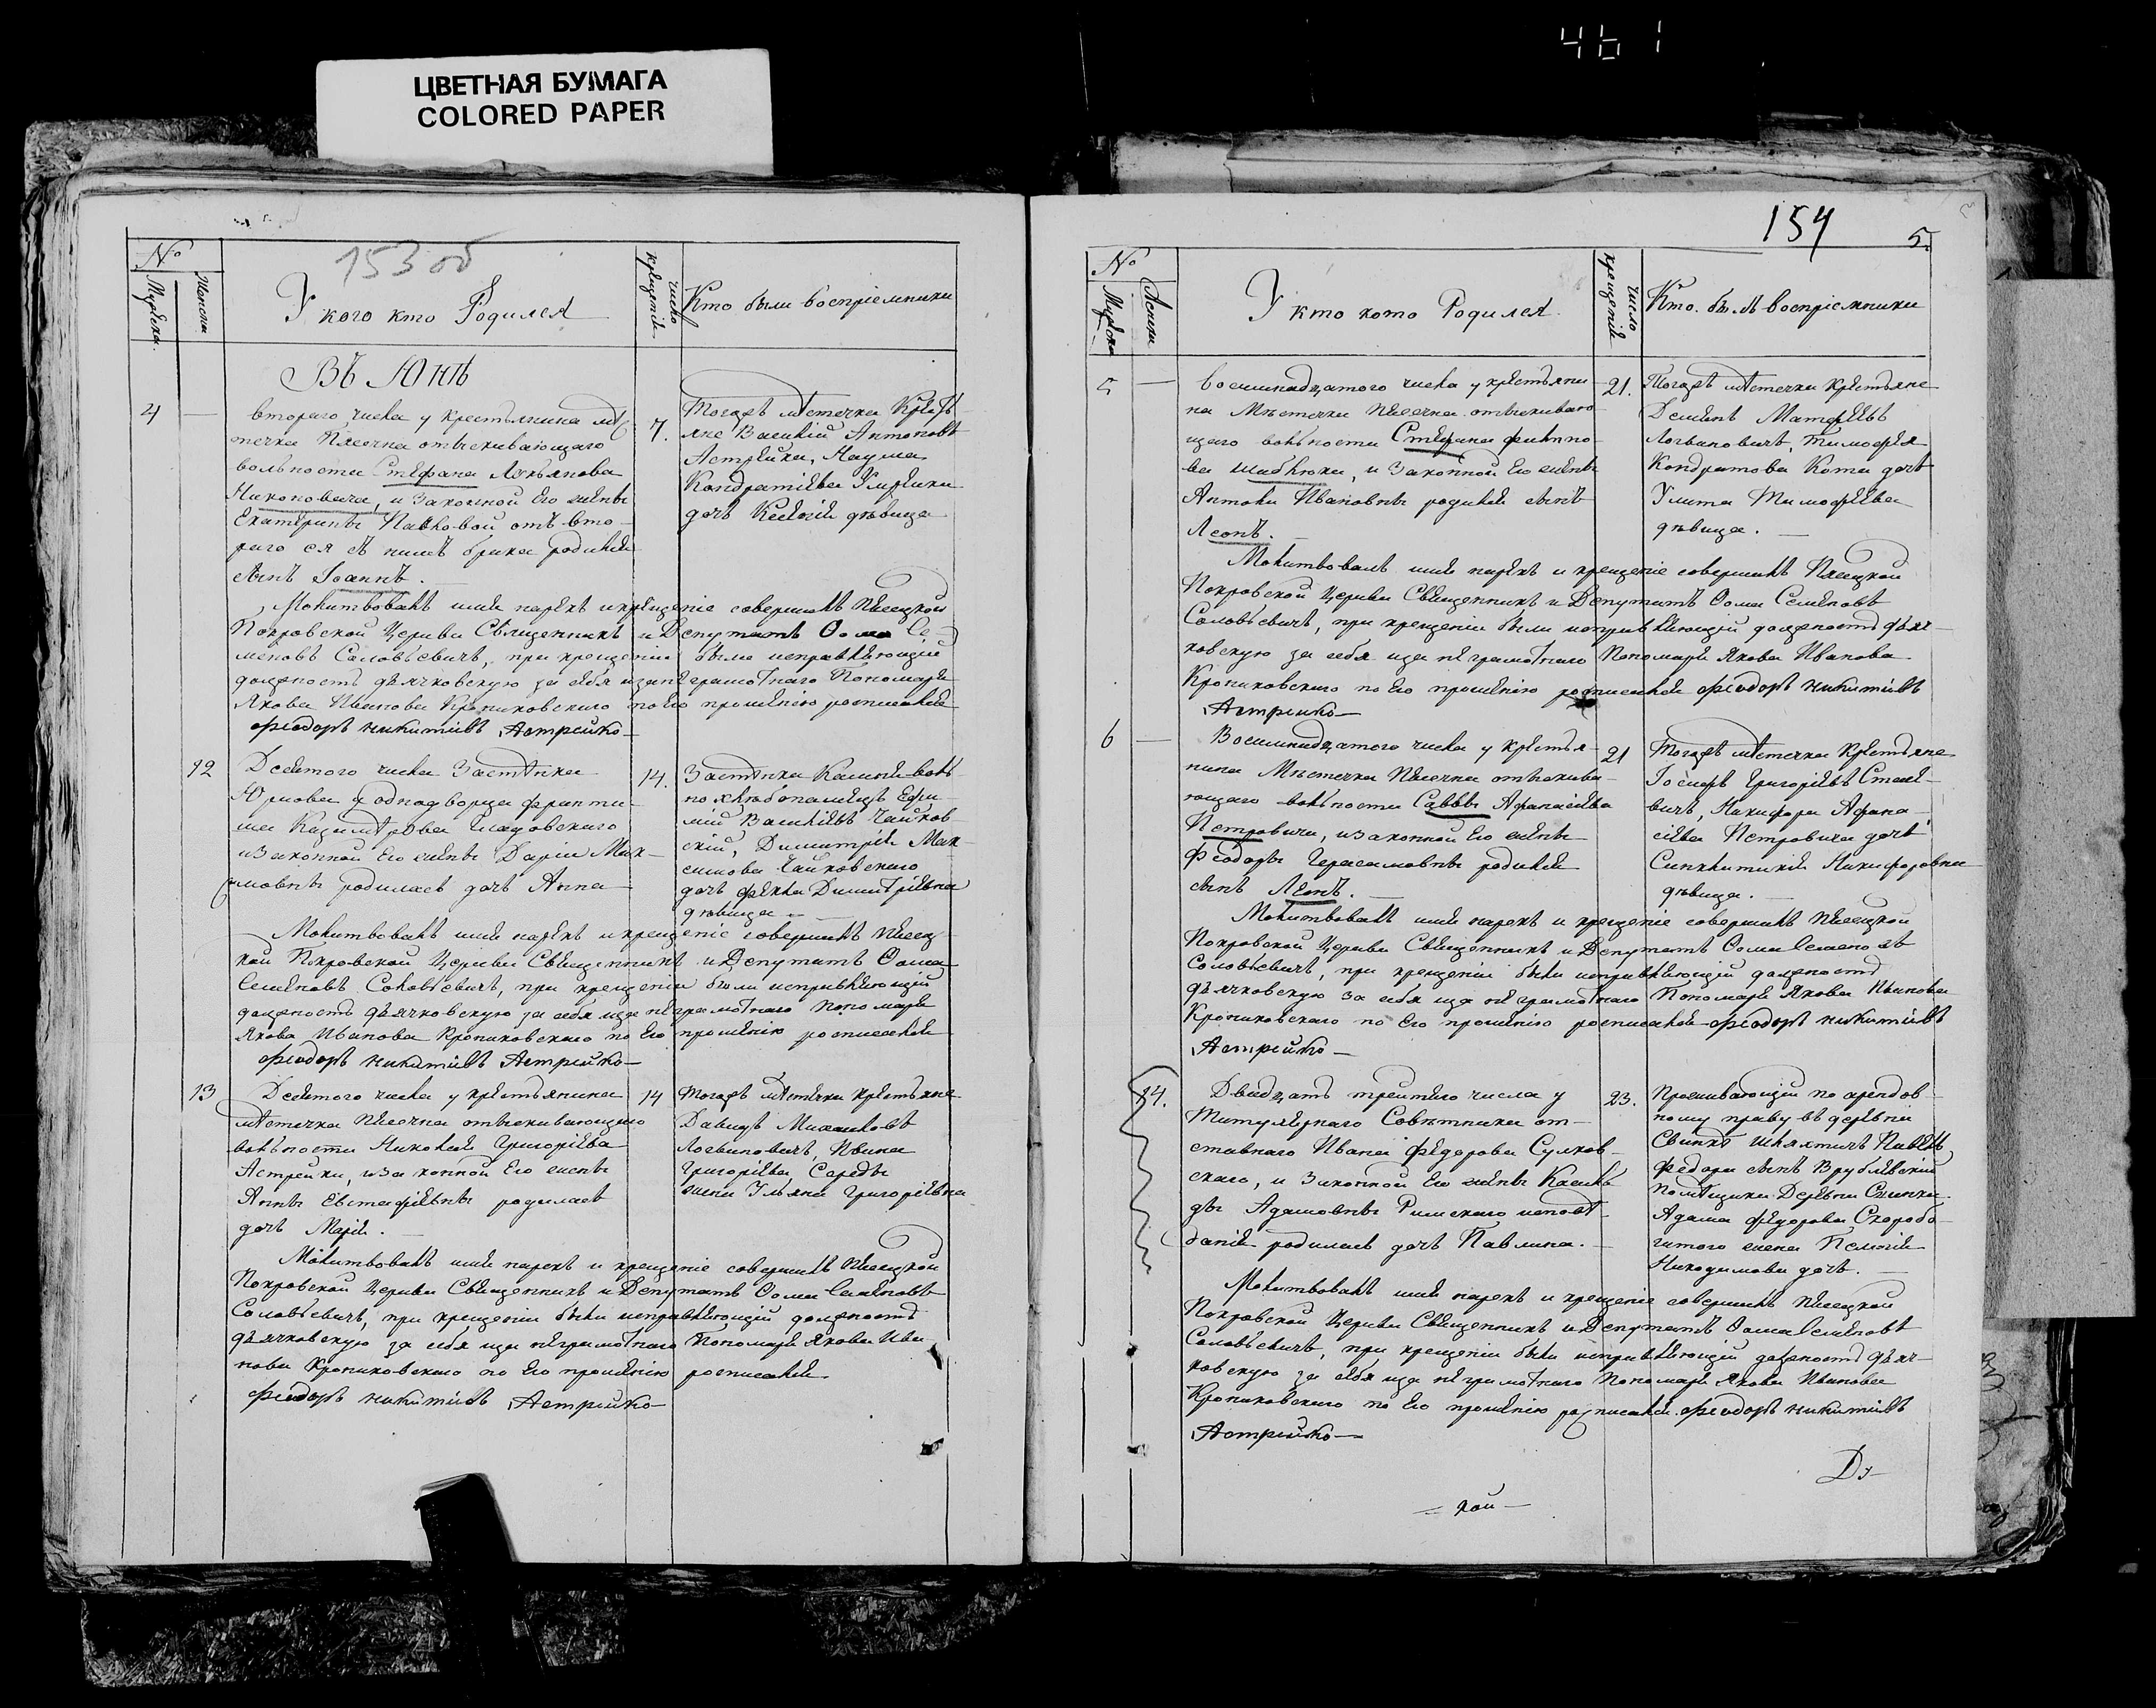 461
ЦВЕТНАЯ БУМАГА
COLORED PAPER
153 об
№
Мужеска.
Женска
У кого кто Родился
число крещенія.
Кто были воспріемники
Въ Юнѣ
4 —
втораго числа у крестьянина мѣ
течка Пясечна отыскивающаго
вольности Стефана Лукьянова
Никоновича, и законной Его жены
Екатерины Павковой отъ вто-
раго ся съ нимъ брака родился
сынъ Іоаннъ.
7.
Тогожъ мѣстечка Кресть
яне Василій Антоновъ
Астрейка, Наума
Кондратіева
дочь дѣвица
Молитвовалъ имя нарекъ и крещеніе совершилъ Пясецкой
Покровской Церкви Священникъ и Депутатъ Ѳома Се-
меновъ Соловьевичъ, при крещеніи были исправляющій
должность дьячковскую за себя и за неграмотнаго Пономаря
Якова Иванова Кропиховскаго по Его прошенію росписался
Феодоръ Никитинъ Астрейко —
12
Десятого числа Застѣнка
Юрнова у однодворца Франти-
ша Казимѣрова
и законной Его жены Даріи Мак-
имовны родилась дочь Анна
14.
Застѣнка воль-
но хлѣбопашецъ Ефи-
мій Васильевъ Чайков-
скій, Димитрія Мак-
симова Чайковскаго
дочь Фекла Димитріевна
дѣвица —
Молитвовалъ имя нарекъ и крещеніе совершилъ Пясец-
кой Покровской Церкви Священникъ и Депутатъ Ѳома
Семеновъ Соловьевичъ, при крещеніи были исправляющій
должность дьячковскую за себя и за неграмотнаго Пономаря
Якова Иванова Кропиховскаго по Его прошенію росписался
Феодоръ Никитинъ Астрейко —
13
Десятого числа у крестьянина
мѣстечка Пясечна отыскивающаго
вольности Николая Григоріева
Астрейки, и законной Его жены
Анны Евстафіевны родилась
дочь Марія.
14
Тогожъ мѣстечка крестьяне
Давидъ Михайловъ
Логвиновичъ, Ивана
Григоріева Середы
жена Ульяна Григоріевна
Молитвовалъ имя нарекъ и крещеніе совершилъ Пясецкой
Покровской Церкви Священникъ и Депутатъ Ѳома Семеновъ
Соловьевичъ, при крещеніи были исправляющій должность
дьячковскую за себя и за неграмотнаго Пономаря Якова Ива-
нова Кропиховскаго по Его прошенію росписался
Феодоръ Никитинъ Астрейко —
154
5.
№
Мужска
Женска
У кто кого Родился.
число крещеній
Кто. былъ воспріемники
5 —
Восемнадцатого числа у крестьяни-
на Мѣстечка Пясечна отыскиваю-
щаго вольности Стефана Филиппо-
ва Шаблюки, и Законной Его жены
Антоли Ивановны родился сынъ
Леонъ.
21.
Тогожъ мѣстечка крестьяне
Деменъ Матфѣевъ
Логвиновичъ, Тимофея
Кондратова Кота дочь
Улита Тимофѣева
дѣвица. —
Молитвовалъ имя нарекъ и крещеніе совершилъ Пясецкой
Покровской Церкви Священникъ и Депутатъ Ѳома Семеновъ
Соловьевичъ, при крещеніи были исправляющій должность дьяч-
ковскую за себя и за неграмотнаго Пономаря Якова Иванова
Кропиховскаго по Его прошенію росписался Феодоръ Никитинъ
Астрейко —
6 —
Восемнадцатого числа у крестья-
нина Мѣстечка Пясечна отыскива-
ющаго вольности Саввы Афанасіева
Петровича, и законной Его жены
Феодоры Герасимовны родился
сынъ Леонъ.
21
Тогожъ мѣстечка крестьяне
Іосифъ Григоріевъ
Никифора Афана-
сіева Петровича дочь
Синклитикія Никифоровна
дѣвица.
Молитвовалъ имя нарекъ и крещеніе совершилъ Пясецкой
Покровской Церкви Священникъ и Депутатъ Ѳома Семеновъ
Соловьевичъ, при крещеніи были исправляющій должность
дьячковскую за себя и за неграмотнаго Пономаря Якова Иванова
Кропиховскаго по Его прошенію росписался Феодоръ Никитинъ
Астрейко —
14.
Двадцать третяго числа у
Титулярнаго Совѣтника от-
ставнаго Ивана Федорова Сулков-
скаго, и Законной Его жены
Адамовны Римскаго исповѣ-
данія родилась дочь Павлина. —
23.
Проживающій по арендов-
ному праву въ деревнѣ
шляхтичъ Павелъ
Федора сынъ Врублевскій
помѣщика Деревни
Адама Федорова Скоробо-
гатого жена Пелагія
Никодимова дочь. —
Молитвовалъ имя нарекъ и крещеніе совершилъ Пясецкой
Покровской Церкви Священникъ и Депутатъ Ѳома Семеновъ
Соловьевичъ, при крещеніи были исправляющій должность дьяч-
ковскую за себя и за неграмотнаго Пономаря Якова Иванова
Кропиховскаго по Его прошенію росписался. Феодоръ Никитинъ
Астрейко —